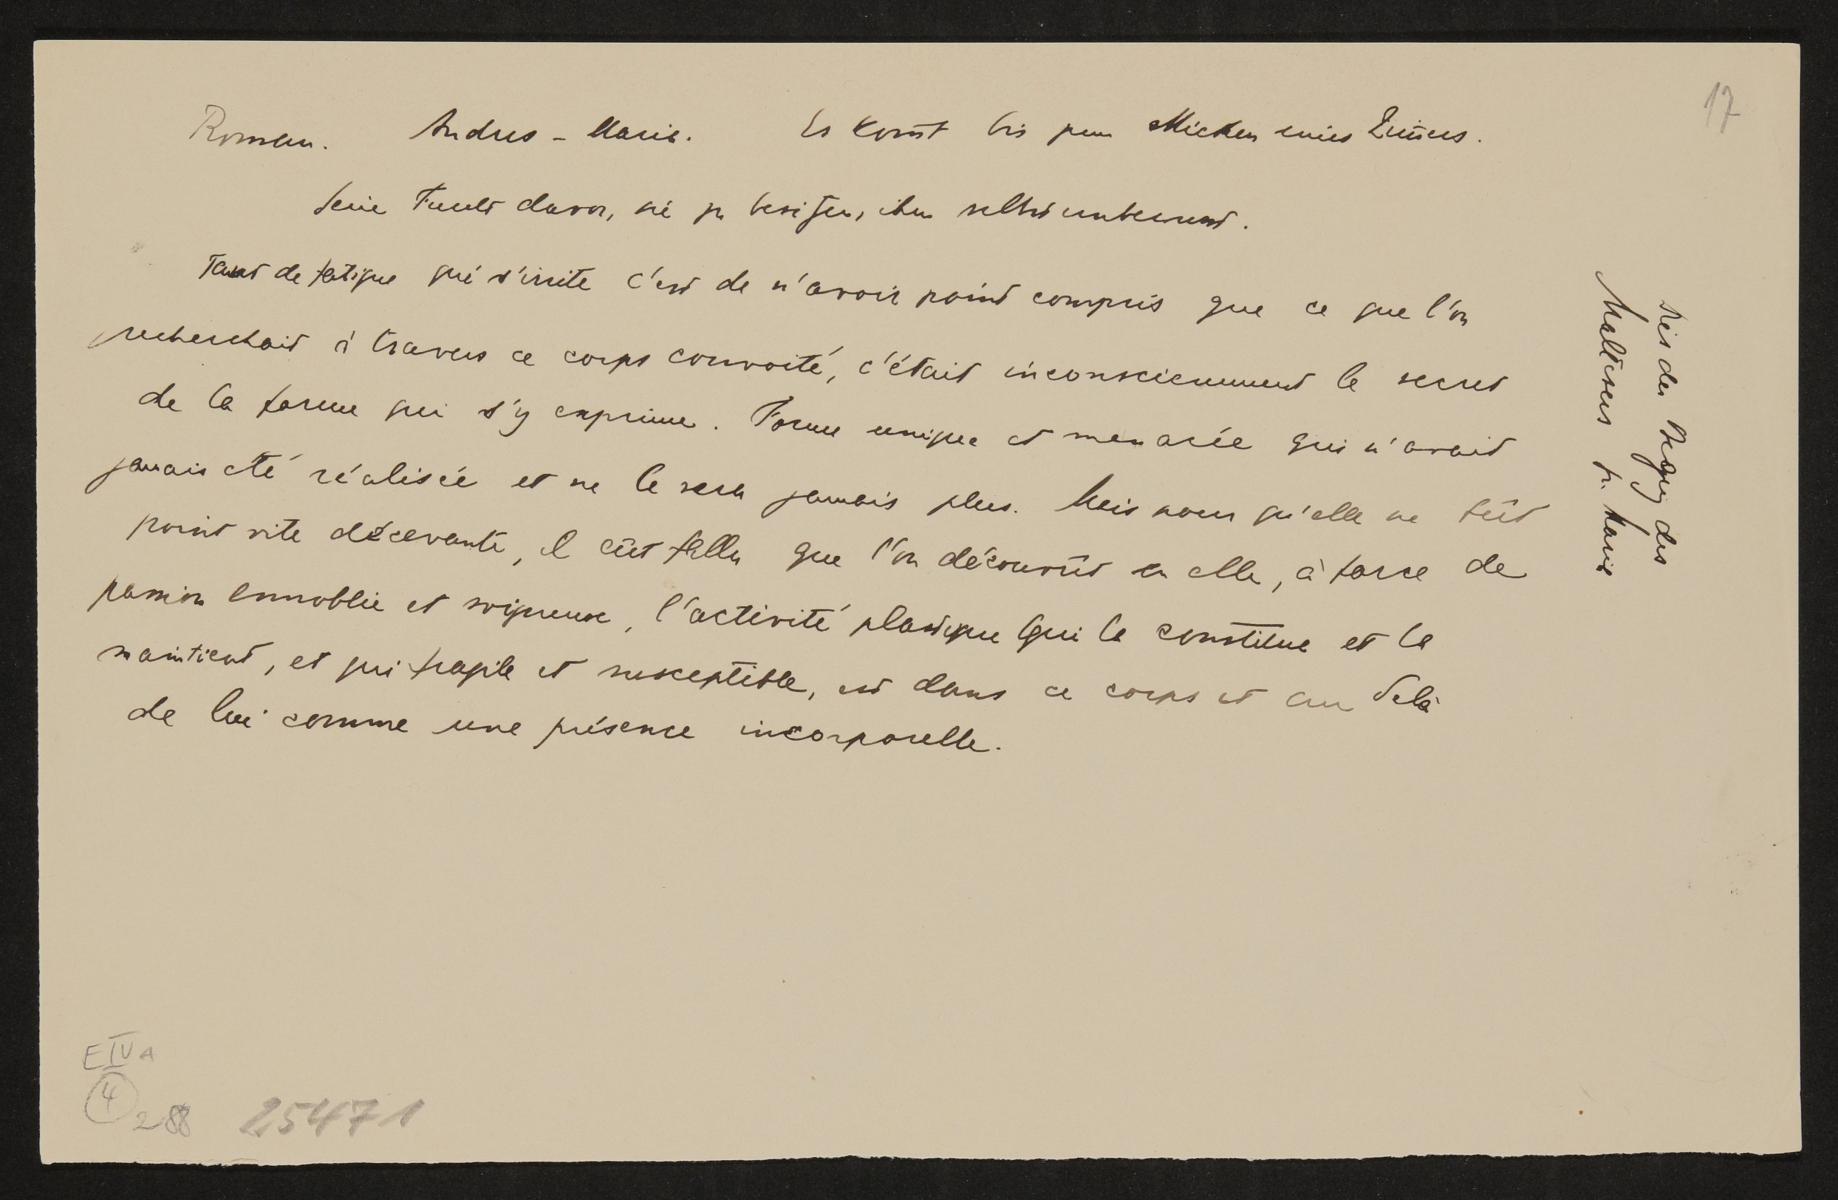 17
Roman. Andres – Marie. Es kom̅t bis zum eines Zim̅ers.
Seine Furcht davor, sie zu besitzen, ihm selbst unbewusst.
Tant de fatigue qui s'irrite c'est de n'avoir point compris que ce que l'on
recherchait à travers ce corps convoité, c'était inconsciemment le secret
de la forme qui s'y exprime. Forme unique et menacée qui n'avait
jamais été réalisée et ne le sera jamais plus. Mais pour qu'elle ne fût
point vite décevante, il eût fallu que l'on découvrît en elle, à force de
passion ennoblie et soigneuse, l'activité plastique qui la constitue et la
maintient, et qui fragile et susceptible, est dans ce corps et au delà
de lui comme une présence incorporelle.
Dies der des
Maltesers für Marie
E IV A
4
288 25471